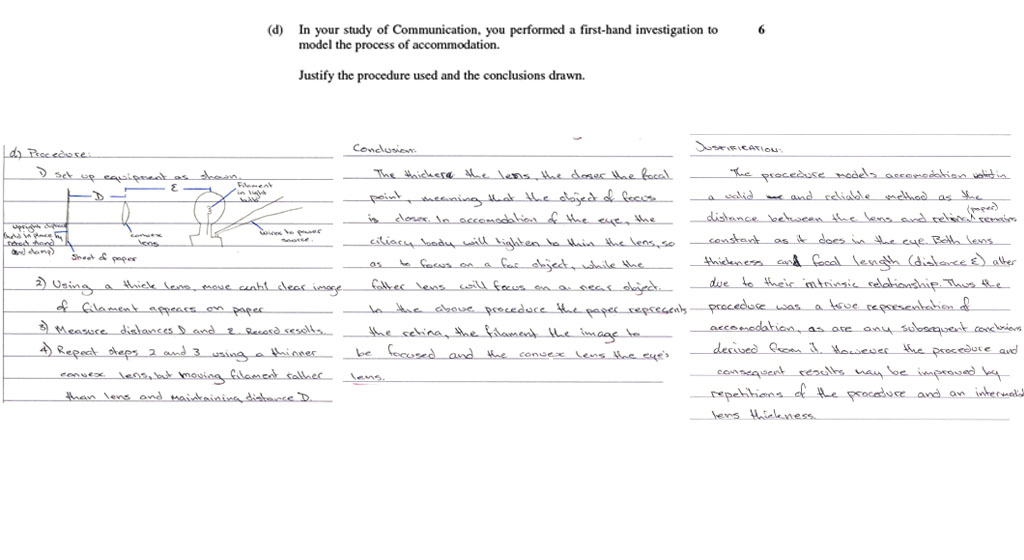 (d) In your study of Communication, you performed a first-hand investigation to 6
model the process of accommodation.
Justify the procedure used and the conclusions drawn.
d) Procedure:
1) Set up equipment as shown.
D
E
Filament
in light
bulb
upright
held in place by
retort stand
and clamp)
Sheet of paper
convex
lens
wires to power
source.
2) Using a thick lens, move until clear image
of filament appears on paper
3) Measure distances D and E. Record results.
4) Repeat steps 2 and 3 using a thinner
convex lens, but moving filament rather
than lens and maintaining distance D.
Conclusion:
The thicker the lens, the closer the focal
point, meaning that the object of focus
is closer. In accomodation of the eye, the
ciliary body will tighten to thin the lens, so
as to focus on a far object, while the
fatter lens will focus on a near object.
In the above procedure the paper represents
the retina, the filament the image to
be focused and the convex lens the eye's
lens.
JUSTIFICATION:
The procedure models accomodation in
a valid and reliable method as the
(paper)
distance between the lens and retina remains
constant as it does in the eye. Both lens
thickness and focal length (distance E) alter
due to their intrinsic relationship. Thus the
procedure was a true representation of
accomodation, as are any subsequent conclusions
derived from it. However the procedure and
consequent results may be improved by
repetitions of the procedure and an intermediate
lens thickness.